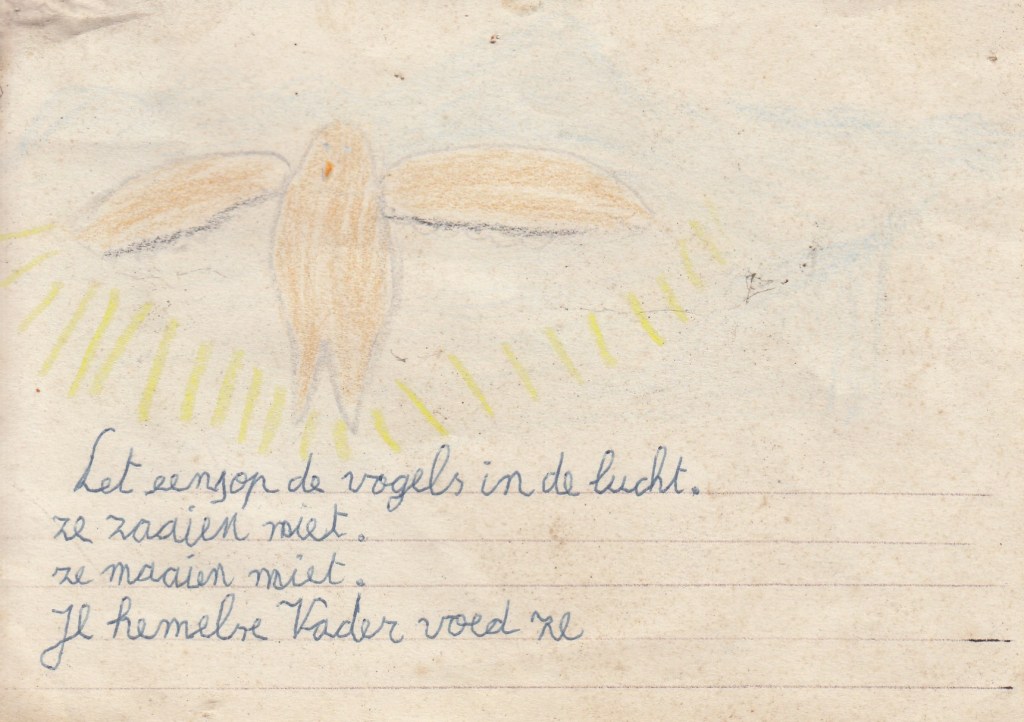 Let eensop de vogels in de lucht.
ze zaaien niet.
ze maaien niet.
Je hemelse Vader voed ze